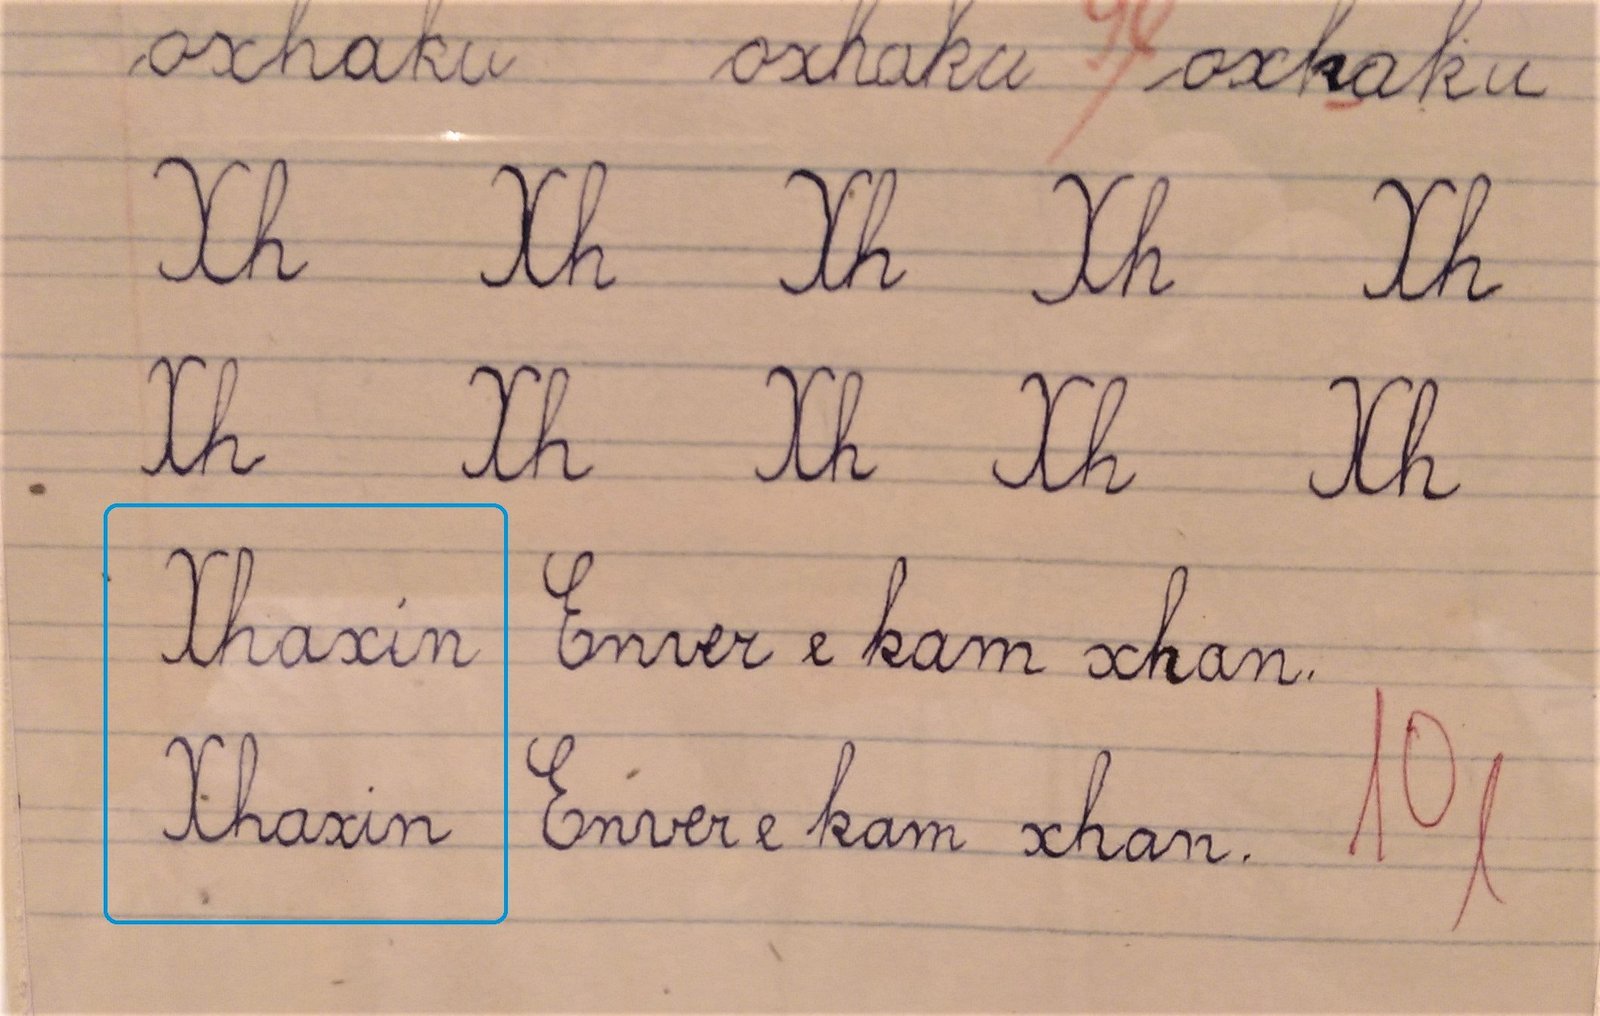 oxhaku oxhaku oxhaku
Xh Xh Xh Xh Xh
Xh Xh Xh Xh Xh
Xhaxin Enver e kam xhan.
Xhaxin Enver e kam xhan.
10